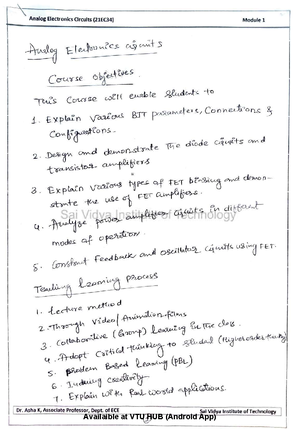 Analog Electronics Circuits (21EC34) Module 1
Analog Electronics circuits
Course Objectives.
This Course will enable Students to
1. Explain Various BJT parameters, Connections &
Configurations.
2. Design and demonstrate the diode circuits and
transistor amplifiers
3. Explain various types of FET biasing and demon-
strate the use of FET amplifiers.
Sai Vidya Institute of Technology
4. Analyze power amplifier circuits in different
modes of operation.
5. Construct Feedback and oscillator circuits using FET.
Teaching learning process
1. Lecture method
2. Through Video/Animation films
3. Collaborative (Group) Learning in the class.
4. Adopt Critical thinking to (Higher order thinking)
5. Problem Based Learning (PBL)
6. Inducing Creativity
7. Explain with Real world applications.
Dr. Asha K, Associate Professor, Dept. of ECE Sai Vidya Institute of Technology
Available at VTU HUB (Android App)